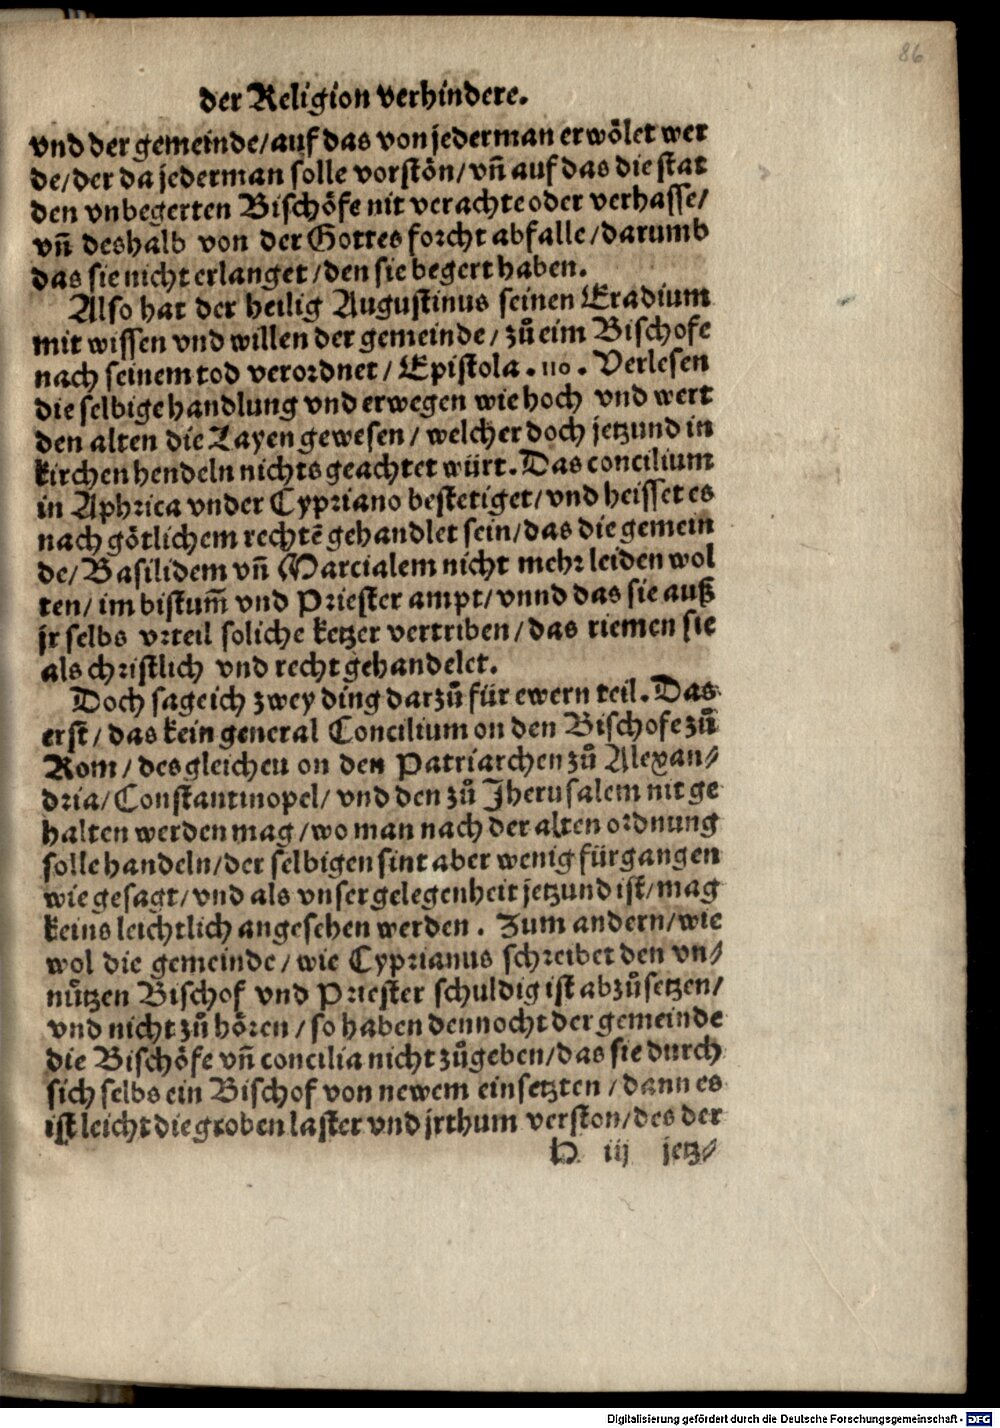 86
der Religion verhindere.
vnd der gemeinde/auf das von jederman erwölet wer
de/der da jederman solle vorstön/vñ auf das die stat
den vnbegerten Bischöfe nit verachte oder verhasse/
vñ deshalb von der Gottes forcht abfalle/darumb
das sie nicht erlanget/den sie begert haben.
Also hat der heilig Augustinus seinen Eradium
mit wissen vnd willen der gemeinde/zů eim Bischofe
nach seinem tod verordnet/Epistola.110. Verlesen
die selbige handlung vnd erwegen wie hoch vnd wert
den alten die Layen gewesen/welcher doch jetzund in
kirchen hendeln nichts geachtet würt. Das concilium
in Aphrica vnder Cypriano bestetiget/vnd heisset es
nach götlichem rechtē gehandlet sein/das die gemein
de/Basilidem vñ Marcialem nicht mehr leiden wol
ten/im bistum̄ vnd Priester ampt/vnnd das sie auß
jr selbs vrteil soliche ketzer vertriben/das riemen sie
als christlich vnd recht gehandelet.
Doch sage ich zwey ding darzů für ewern teil. Das
erst/das kein general Concilium on den Bischofe zů
Rom/desgleichen on den Patriarchen zů Alexan-
dria/Constantinopel/vnd den zů Jherusalem nit ge
halten werden mag/wo man nach der alten ordnung
solle handeln/der selbigen sint aber wenig fürgangen
wie gesagt/vnd als vnser gelegenheit jetzund ist/mag
keins leichtlich angesehen werden. Zum andern/wie
wol die gemeinde/wie Cyprianus schreibet den vn-
nützen Bischof vnd Priester schuldig ist abzůsetzen/
vnd nicht zů hören/so haben dennocht der gemeinde
die Bischöfe vñ concilia nicht zůgeben/das sie durch
sich selbs ein Bischof von newem einsetzten/dann es
ist leicht die groben laster vnd jrthum verston/des der
iij jetz-
Digitalisierung gefördert durch die Deutsche Forschungsgemeinschaft - DFG